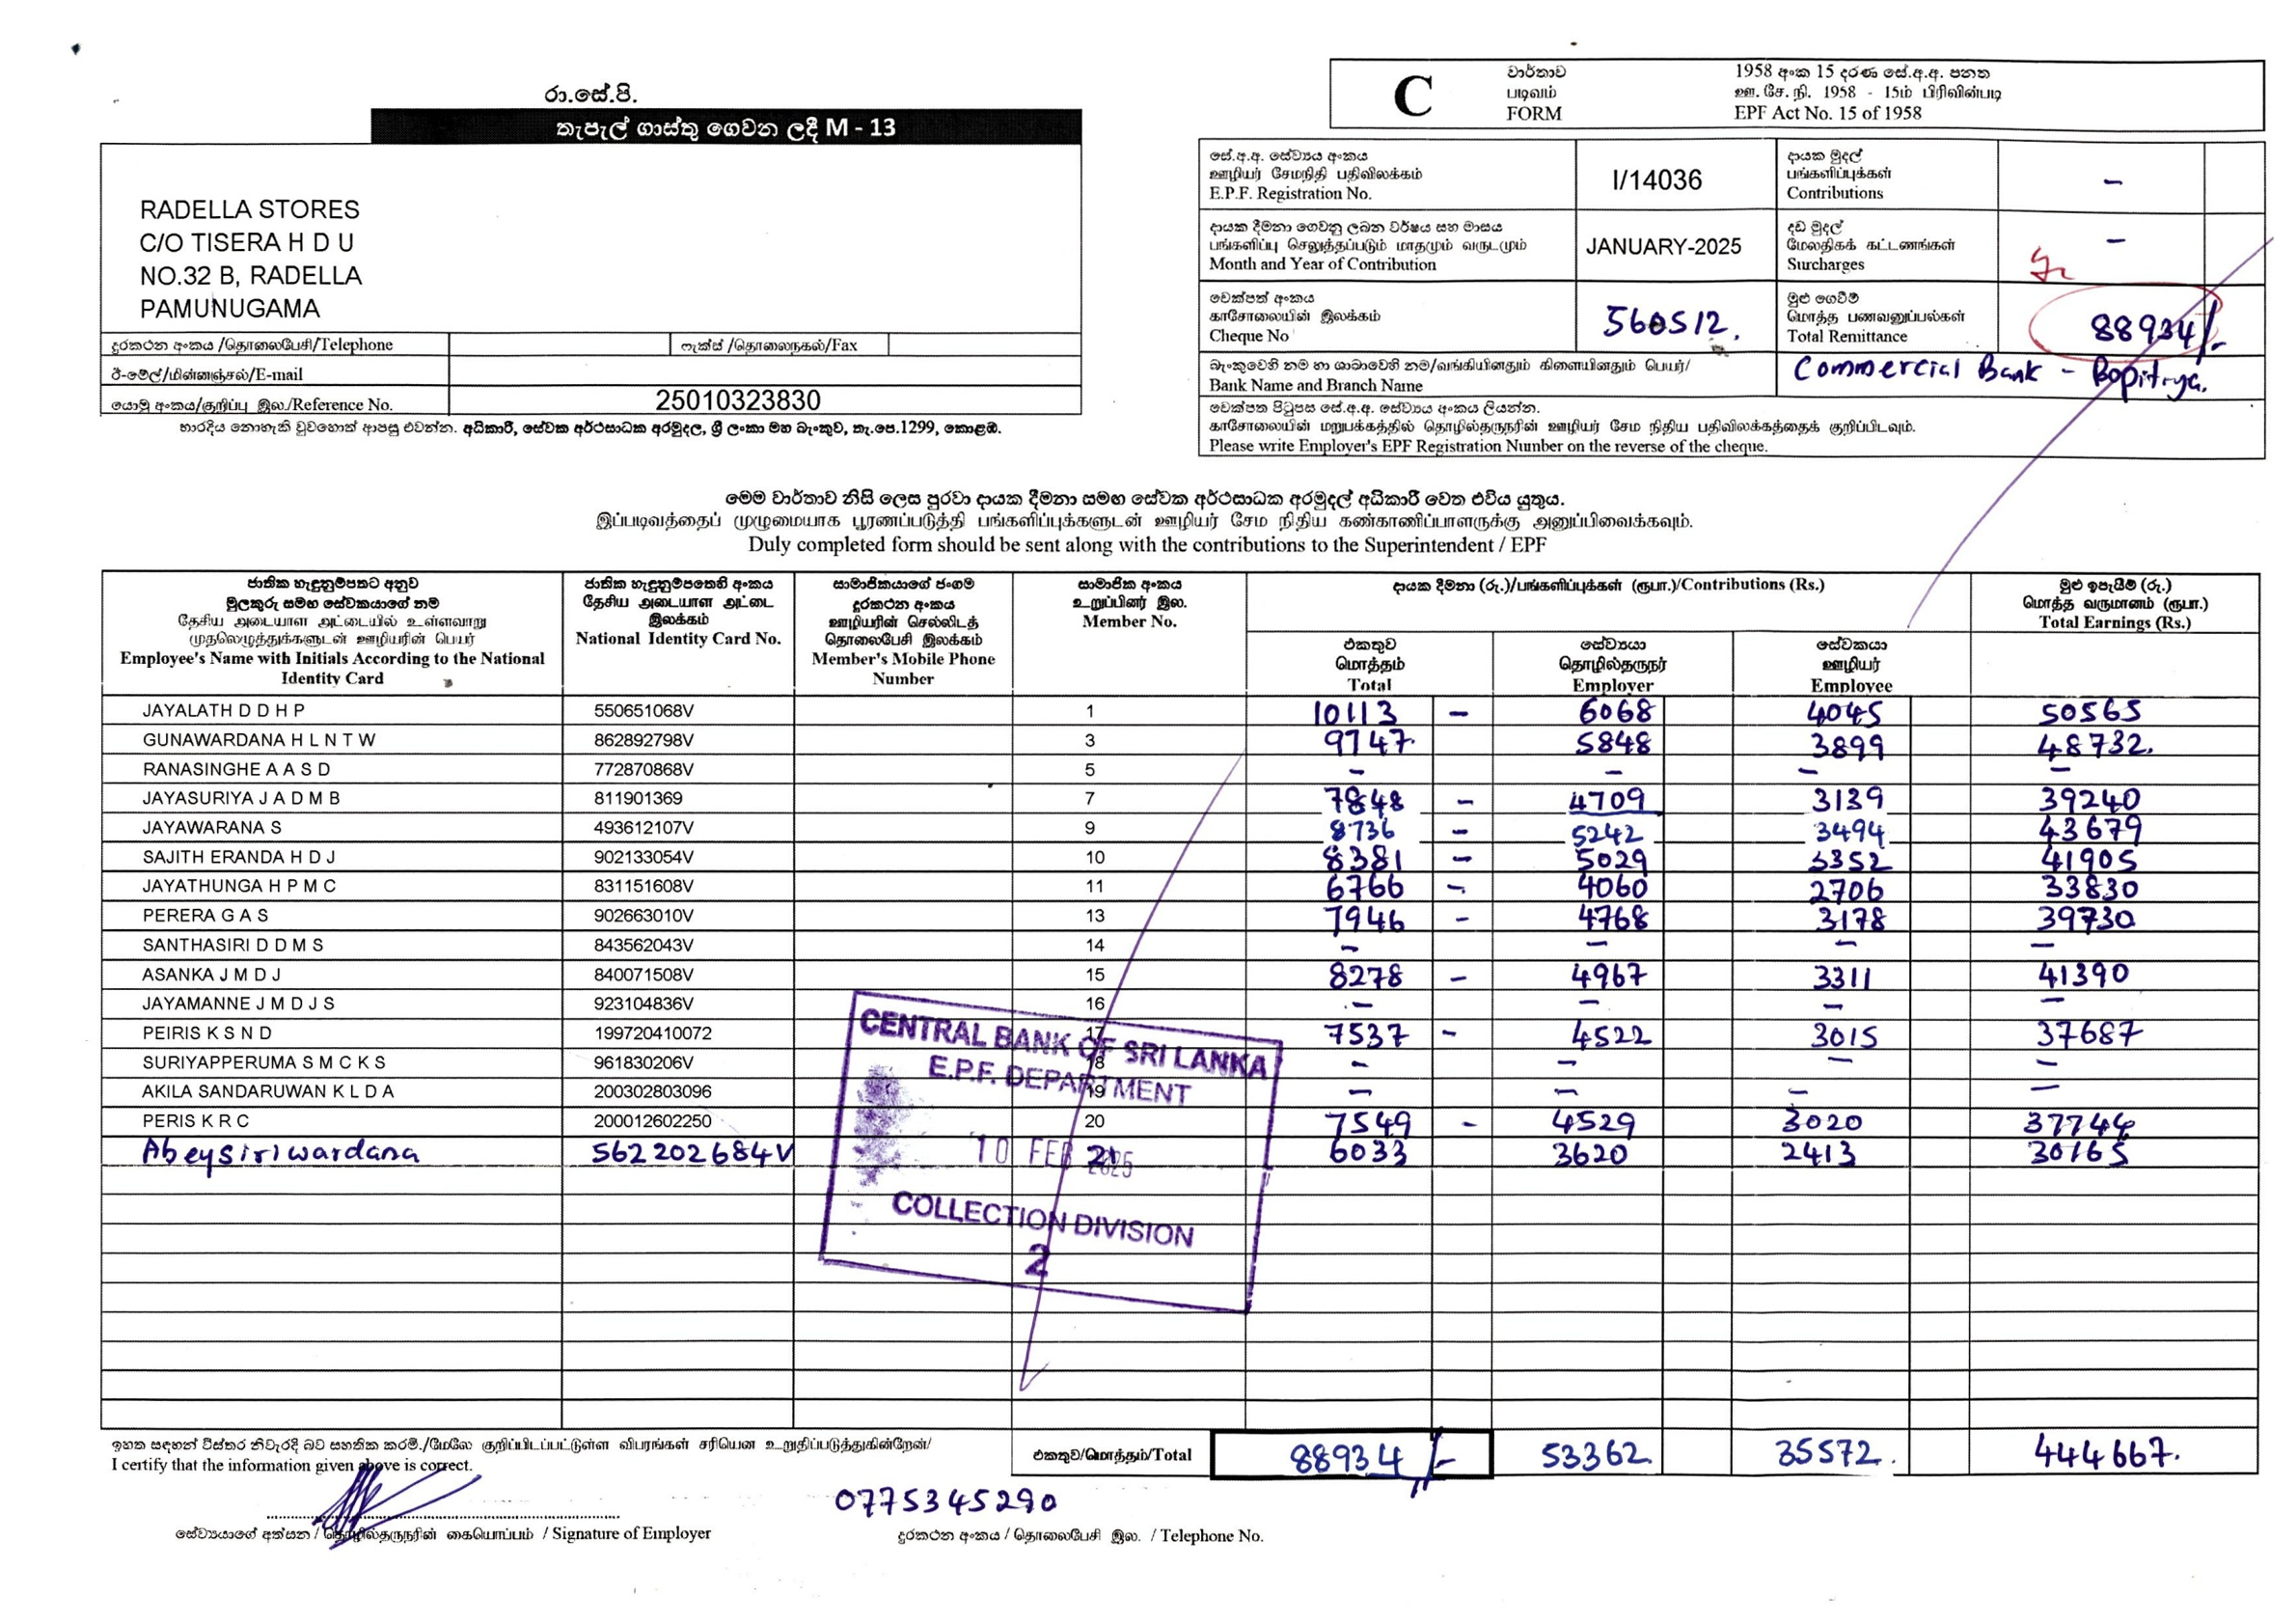 රා.සේ.පි.
තැපැල් ගාස්තු ගෙවන ලදී M - 13
RADELLA STORES
C/O TISERA H D U
NO.32 B, RADELLA
PAMUNUGAMA
දුරකථන අංකය /தொலைபேசி/Telephone
ෆැක්ස් /தொலைநகல்/Fax
ඊ-මේල්/மின்னஞ்சல்/E-mail
යොමු අංකය/குறிப்பு இல./Reference No. 25010323830
භාරදිය නොහැකි වුවහොත් ආපසු එවන්න. අධිකාරී, සේවක අර්ථසාධක අරමුදල, ශ්‍රී ලංකා මහ බැංකුව, තැ.පෙ.1299, කොළඹ.
C
වාර්තාව
படிவம்
FORM
1958 අංක 15 දරණ සේ.අ.අ. පනත
ஊ. சே. நி. 1958 - 15ம் பிரிவின்படி
EPF Act No. 15 of 1958
සේ.අ.අ. සේව්‍යය අංකය
ஊழியர் சேமநிதி பதிவிலக்கம்
E.P.F. Registration No.
I/14036
දායක මුදල්
பங்களிப்புக்கள்
Contributions
-
දායක දීමනා ගෙවනු ලබන වර්ෂය සහ මාසය
பங்களிப்பு செலுத்தப்படும் மாதமும் வருடமும்
Month and Year of Contribution
JANUARY-2025
දඩ මුදල්
மேலதிகக் கட்டணங்கள்
Surcharges
-
චෙක්පත් අංකය
காசோலையின் இலக்கம்
Cheque No
560512.
මුළු ගෙවීම්
மொத்த பணவனுப்பல்கள்
Total Remittance
88934/-
බැංකුවෙහි නම හා ශාඛාවෙහි නම/வங்கியினதும் கிளையினதும் பெயர்/
Bank Name and Branch Name
Commercial Bank - Bopitiya.
චෙක්පත පිටුපස සේ.අ.අ. සේව්‍යය අංකය ලියන්න.
காசோலையின் மறுபக்கத்தில் தொழில்தருநரின் ஊழியர் சேம நிதிய பதிவிலக்கத்தைக் குறிப்பிடவும்.
Please write Employer's EPF Registration Number on the reverse of the cheque.
මෙම වාර්තාව නිසි ලෙස පුරවා දායක දීමනා සමඟ සේවක අර්ථසාධක අරමුදල් අධිකාරී වෙත එවිය යුතුය.
இப்படிவத்தைப் முழுமையாக பூரணப்படுத்தி பங்களிப்புக்களுடன் ஊழியர் சேம நிதிய கண்காணிப்பாளருக்கு அனுப்பிவைக்கவும்.
Duly completed form should be sent along with the contributions to the Superintendent / EPF
ජාතික හැඳුනුම්පතට අනුව
මුලකුරු සමඟ සේවකයාගේ නම
தேசிய அடையாள அட்டையில் உள்ளவாறு
முதலெழுத்துக்களுடன் ஊழியரின் பெயர்
Employee's Name with Initials According to the National
Identity Card
ජාතික හැඳුනුම්පතෙහි අංකය
தேசிய அடையாள அட்டை
இலக்கம்
National Identity Card No.
සාමාජිකයාගේ ජංගම
දුරකථන අංකය
ஊழியரின் செல்லிடத்
தொலைபேசி இலக்கம்
Member's Mobile Phone
Number
සාමාජික අංකය
உறுப்பினர் இல.
Member No.
දායක දීමනා (රු.)/பங்களிப்புக்கள் (ரூபா.)/Contributions (Rs.)
එකතුව
மொத்தம்
Total
සේව්‍යයා
தொழில்தருநர்
Employer
සේවකයා
ஊழியர்
Employee
මුළු ඉපැයීම් (රු.)
மொத்த வருமானம் (ரூபா.)
Total Earnings (Rs.)
JAYALATH D D H P 550651068V 1 10113 - 6068 4045 50565
GUNAWARDANA H L N T W 862892798V 3 9747. 5848 3899 48732.
RANASINGHE A A S D 772870868V 5 - - - -
JAYASURIYA J A D M B 811901369 7 7848 - 4709 3139 39240
JAYAWARANA S 493612107V 9 8736 - 5242 3494 43679
SAJITH ERANDA H D J 902133054V 10 8381 - 5029 3352 41905
JAYATHUNGA H P M C 831151608V 11 6766 - 4060 2706 33830
PERERA G A S 902663010V 13 7946 - 4768 3178 39730
SANTHASIRI D D M S 843562043V 14 - - - -
ASANKA J M D J 840071508V 15 8278 - 4967 3311 41390
JAYAMANNE J M D J S 923104836V 16 - - - -
PEIRIS K S N D 199720410072 17 7537 - 4522 3015 37687
SURIYAPPERUMA S M C K S 961830206V 18 - - - -
AKILA SANDARUWAN K L D A 200302803096 19 - - - -
PERIS K R C 200012602250 20 7549 - 4529 3020 37744
Abeysiriwardana 562202684V 21 6033 3620 2413 30165
CENTRAL BANK OF SRI LANKA
E.P.F. DEPARTMENT
10 FEB 2025
COLLECTION DIVISION
2
ඉහත සඳහන් විස්තර නිවැරදි බව සහතික කරමි./மேலே குறிப்பிடப்பட்டுள்ள விபரங்கள் சரியென உறுதிப்படுத்துகின்றேன்/
I certify that the information given above is correct.
එකතුව/மொத்தம்/Total 88934/- 53362 35572. 444667.
0775345290
සේව්‍යයාගේ අත්සන / தொழில்தருநரின் கையொப்பம் / Signature of Employer
දුරකථන අංකය / தொலைபேசி இல. / Telephone No.